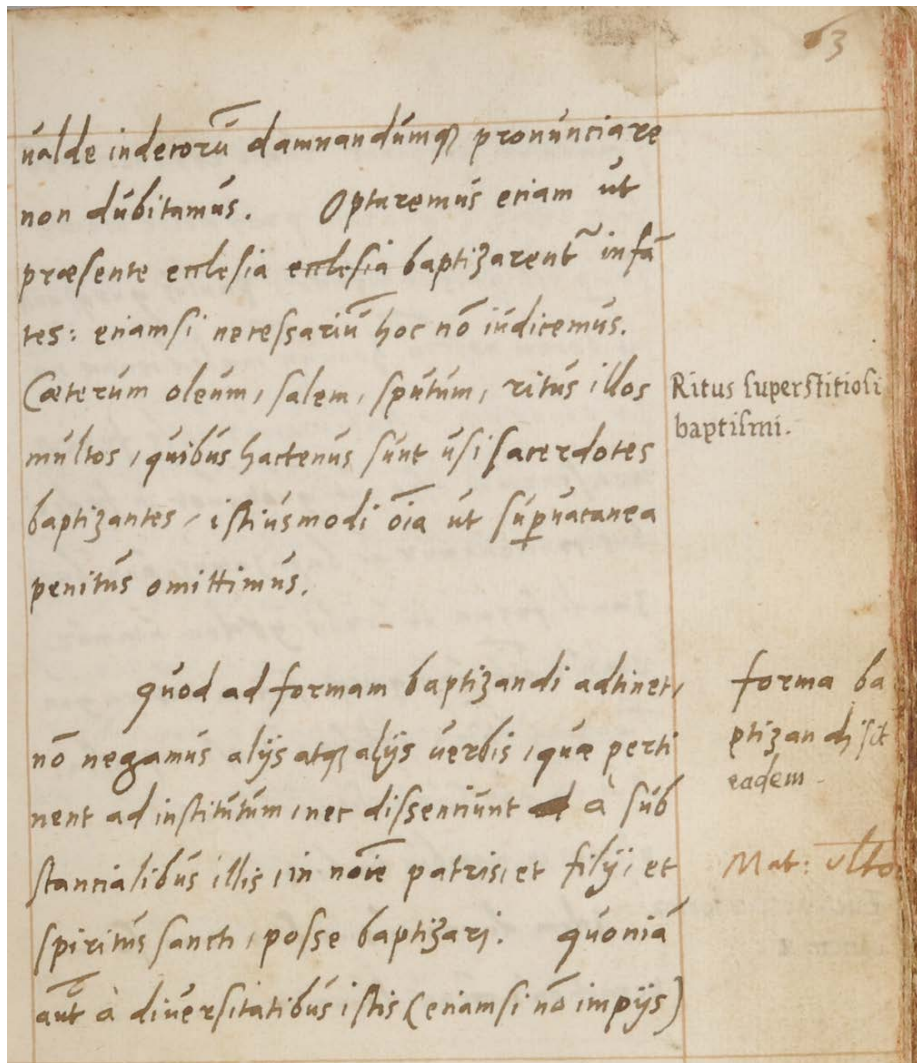 63
ualde indecorū damnandumq₃ pronunciare
non dubitamus. Optaremus eciam ut
præsente ecclesia ecclesia baptizarent᷑ infā
tes: eciamsi necessariū hoc nō iudicemus.
Cæterum oleum, salem, sputum, ritus illos
multos, quibus hactenus sunt usi sacerdotes
baptizantes, istiusmodi oīa ut suꝑuacanea
penitus omittimus.
Ritus superstitiosi
baptismi.
quod ad formam baptizandi adtinet,
nō negamus alijs atq₃ alijs uerbis, quæ perti
nent ad institutum, nec dissenciunt à sub
stancialibus illis, in noīe patris, et filij, et
spiritus sancti, posse baptizari. quoniā
aūt à diuersitatibus istis (eciamsi nō impijs)
forma ba
ptizandi sit
eadem.
Mat: vlto